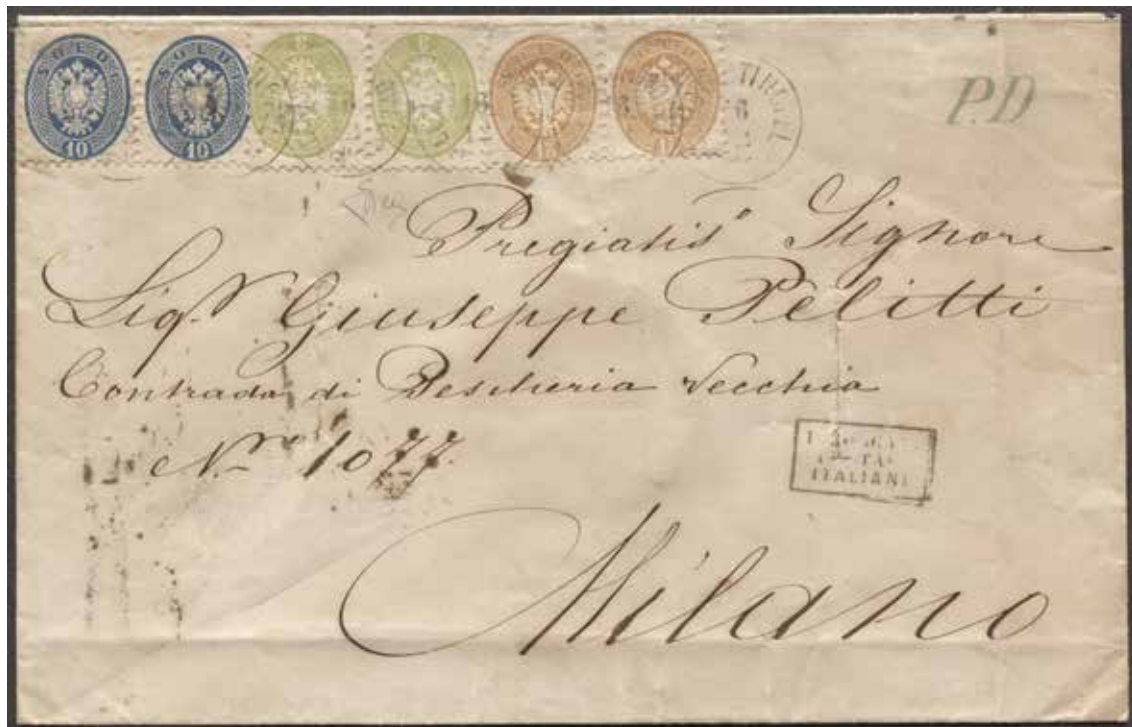 SOLDI SOLDI
10 10 3 3 15 15
P.D
Pregiatis° Signore
Sigr Giuseppe Pelitti
Contrada di Pescheria Vecchia
N° 1077.
ITALIANI
Milano